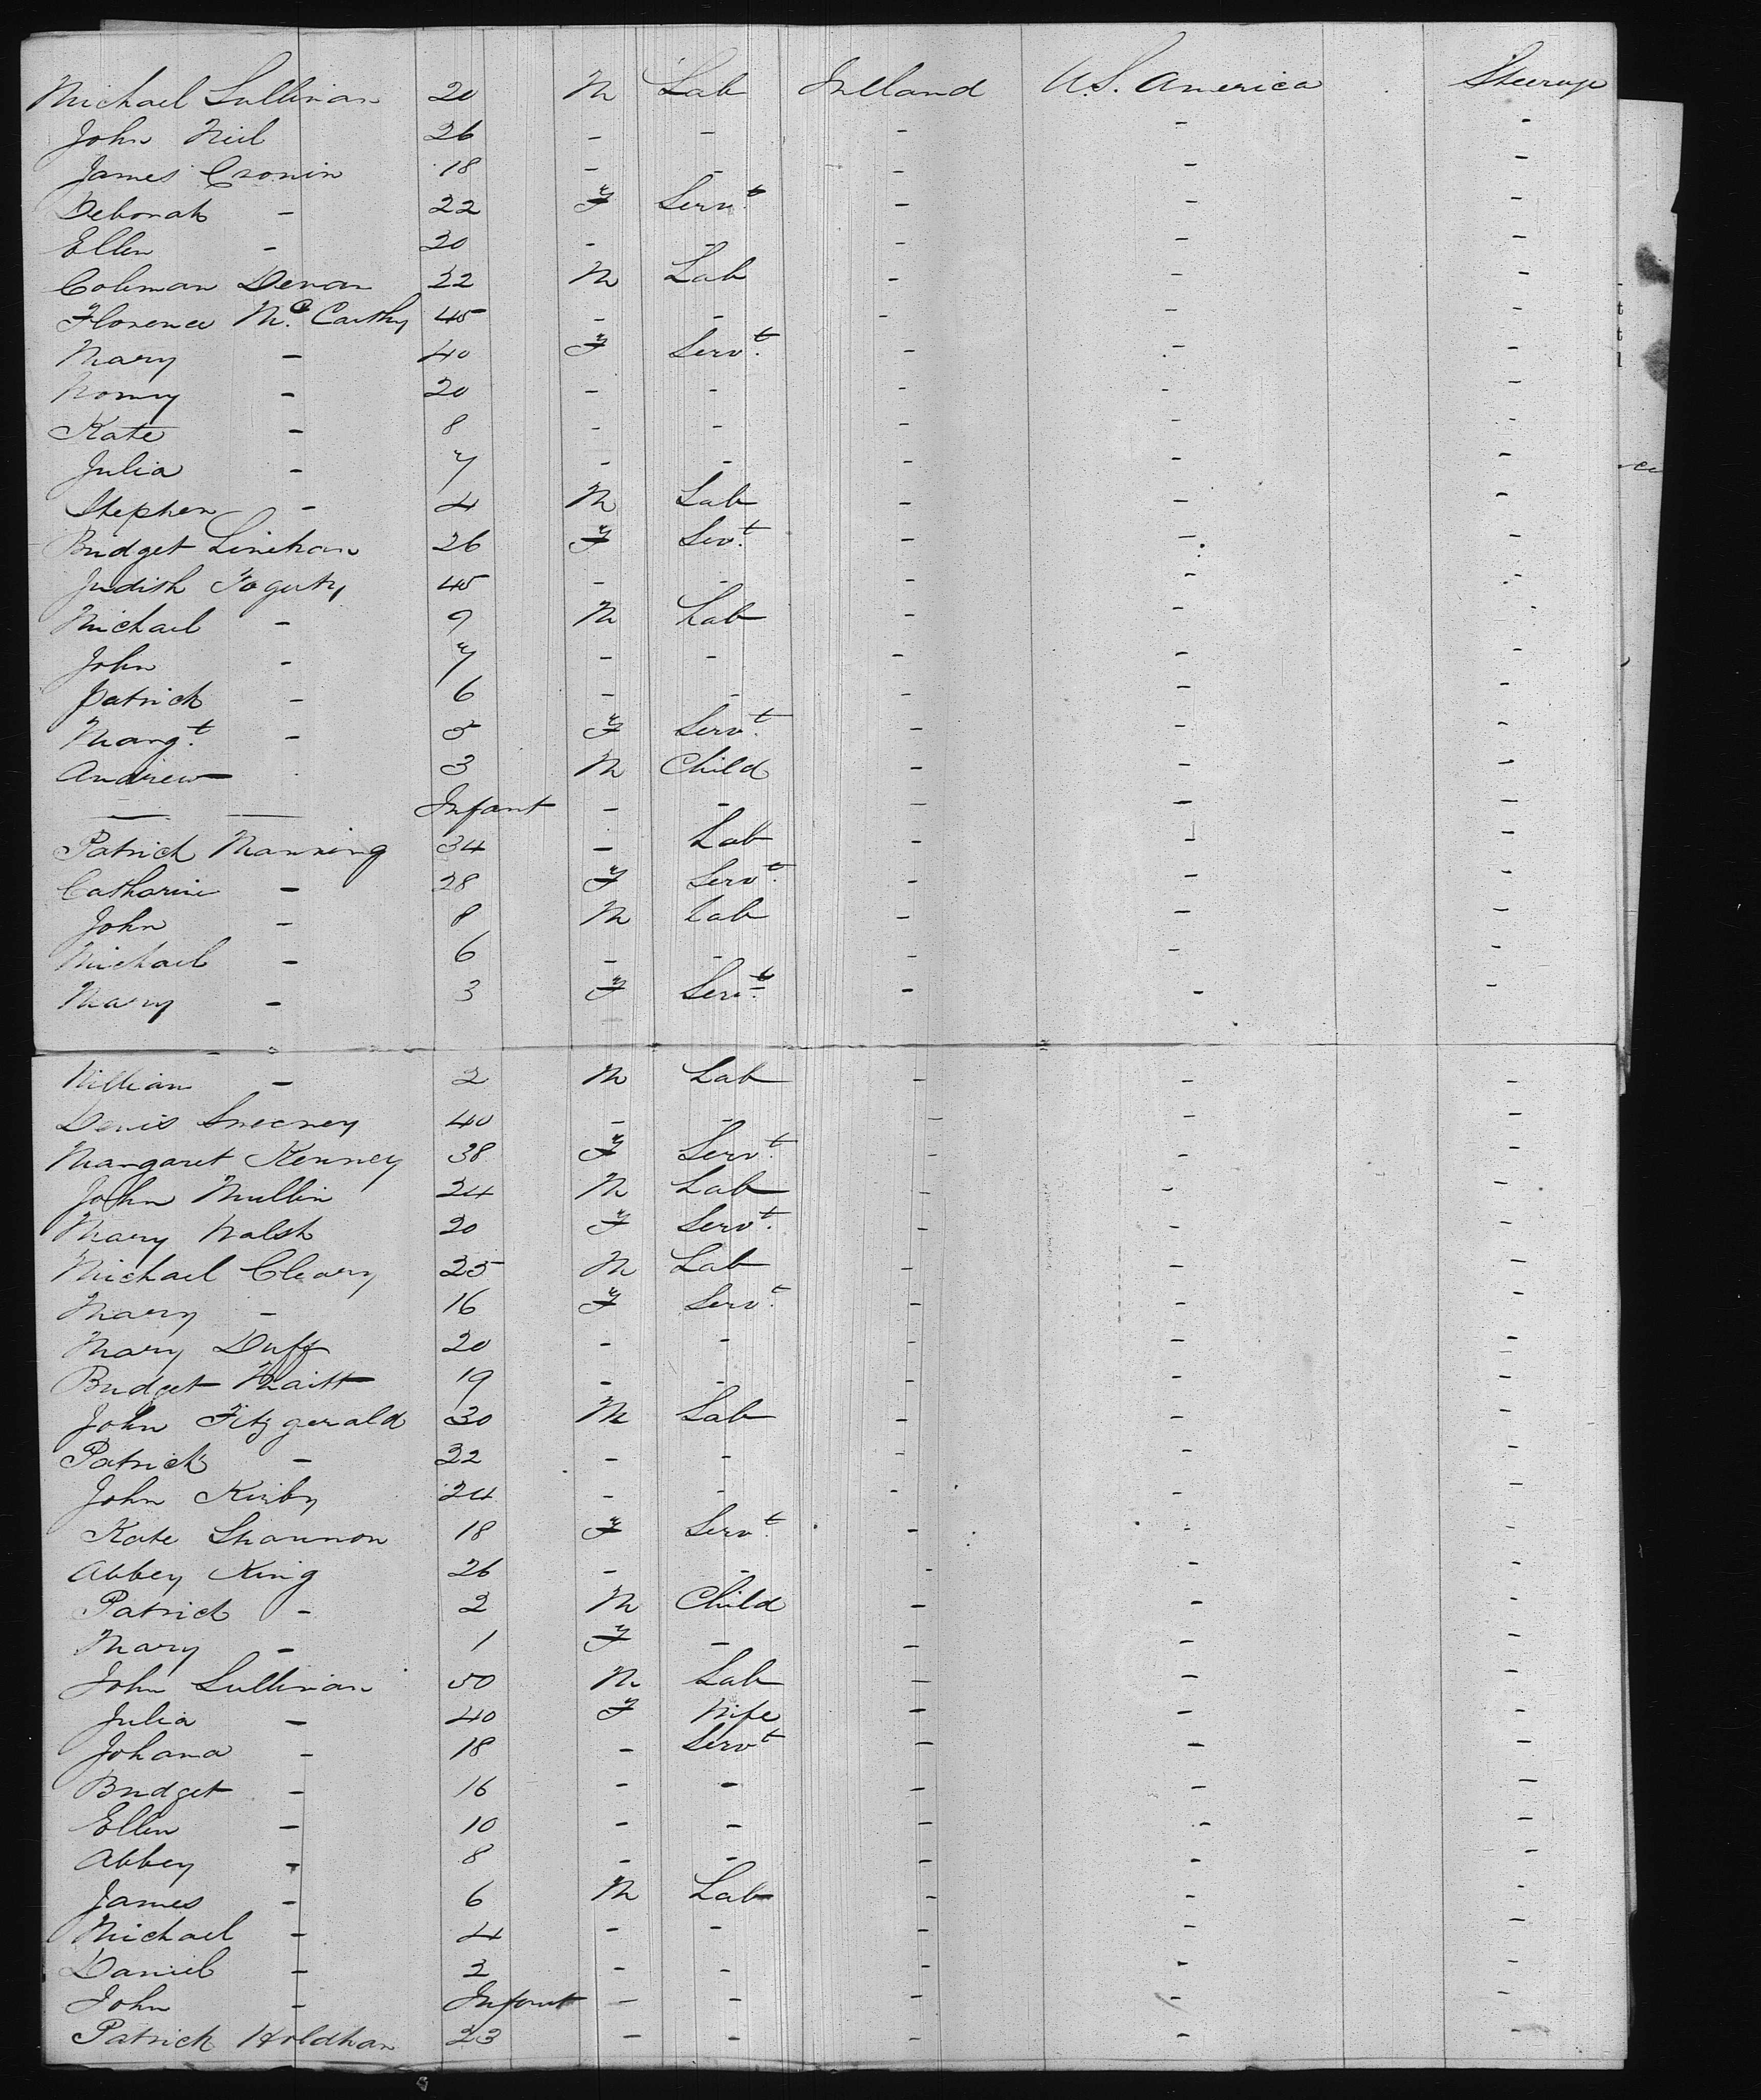 Michael Sullivan 20 M Lab Ireland U.S. America Steerage
John Neil 26 - - - - -
James Cronin 18 - - - - -
Deborah - 22 F Servt. - - -
Ellen - 20 - - - - -
Coleman Devan 22 M Lab - - -
Florence McCarthy 45 - - - - -
Mary - 40 F Servt. - - -
Norry - 20 - - - - -
Kate - 8 - - - - -
Julia - 7 - - - - -
Stephen - 4 M Lab - - -
Bridget Linehan 26 F Sevt. - - -
Judith Fogerty 45 - - - - -
Michael - 9 M Lab - - -
John - 7 - - - - -
Patrick - 6 - - - - -
Margt. - 5 F Servt. - - -
Andrew 3 M Child - - -
— — Infant - - - - -
Patrick Manning 34 - Lab - - -
Catharine - 28 F Servt. - - -
John - 8 M Lab - - -
Michael - 6 - - - - -
Mary - 3 F Servt. - - -
William - 2 M Lab - - -
Denis Sweeney 40 - - - - -
Margaret Kenney 38 F Servt. - - -
John Mullin 24 M Lab - - -
Mary Walsh 20 F Servt. - - -
Michael Cleary 25 M Lab - - -
Mary - 16 F Servt. - - -
Mary Duff 20 - - - - -
Bridget 19 - - - - -
John Fitzgerald 30 M Lab - - -
Patrick - 22 - - - - -
John Kirby 24 - - - - -
Kate Shannon 18 F Servt. - - -
Abbey King 26 - - - - -
Patrick - 2 M Child - - -
Mary - 1 F - - - -
John Sullivan 50 M Lab - - -
Julia - 40 F Wife - - -
Johana - 18 - Servt - - -
Bridget - 16 - - - - -
Ellen - 10 - - - - -
Abbey - 8 - - - - -
James - 6 M Lab - - -
Michael - 4 - - - - -
Daniel - 2 - - - - -
John - Infant - - - - -
Patrick Holdhan 23 - - - - -